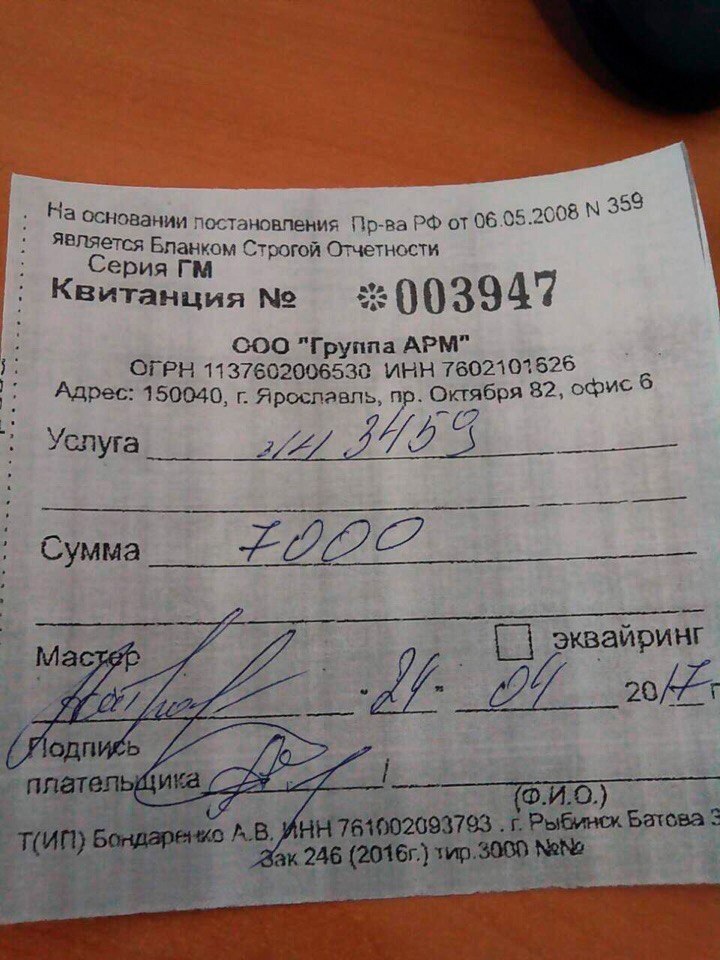 На основании постановления Пр-ва РФ от 06.05.2008 N 359
является Бланком Строгой Отчетности
Серия ГМ
Квитанция № 003947
ООО "Группа АРМ"
ОГРН 1137602006530 ИНН 7602101626
Адрес: 150040, г. Ярославль, пр. Октября 82, офис 6
Услуга 3459
Сумма 7000
Мастер
эквайринг
"24" 04 2017 г
Подпись
плательщика /
(Ф.И.О.)
Т(ИП) Бондаренко А.В. ИНН 761002093793 . г. Рыбинск Батова 3
Зак 246 (2016г.) тир.3000 №№